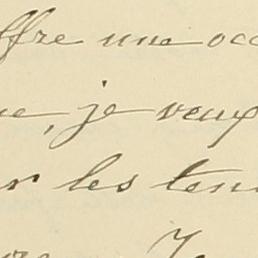 ffre une occ
e, je veux
r les ten